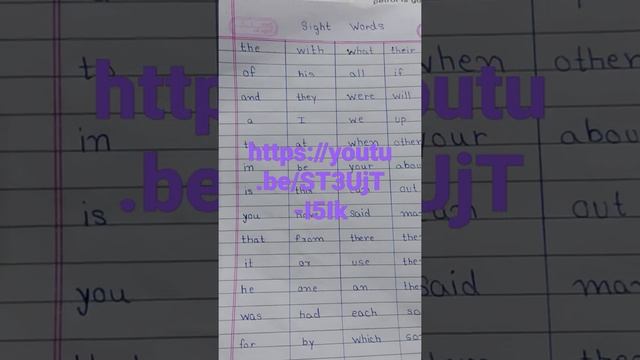 Sight Words
the with what their
of his all if
and they were will
a I we up
at when other
in be your abou
is this out
you said ma
that from there the
it or use the
he one an the
was had each so
for by which so
https://youtu
.be/ST3UjT
-I5Ik
when other
in your abou
is out
you said ma